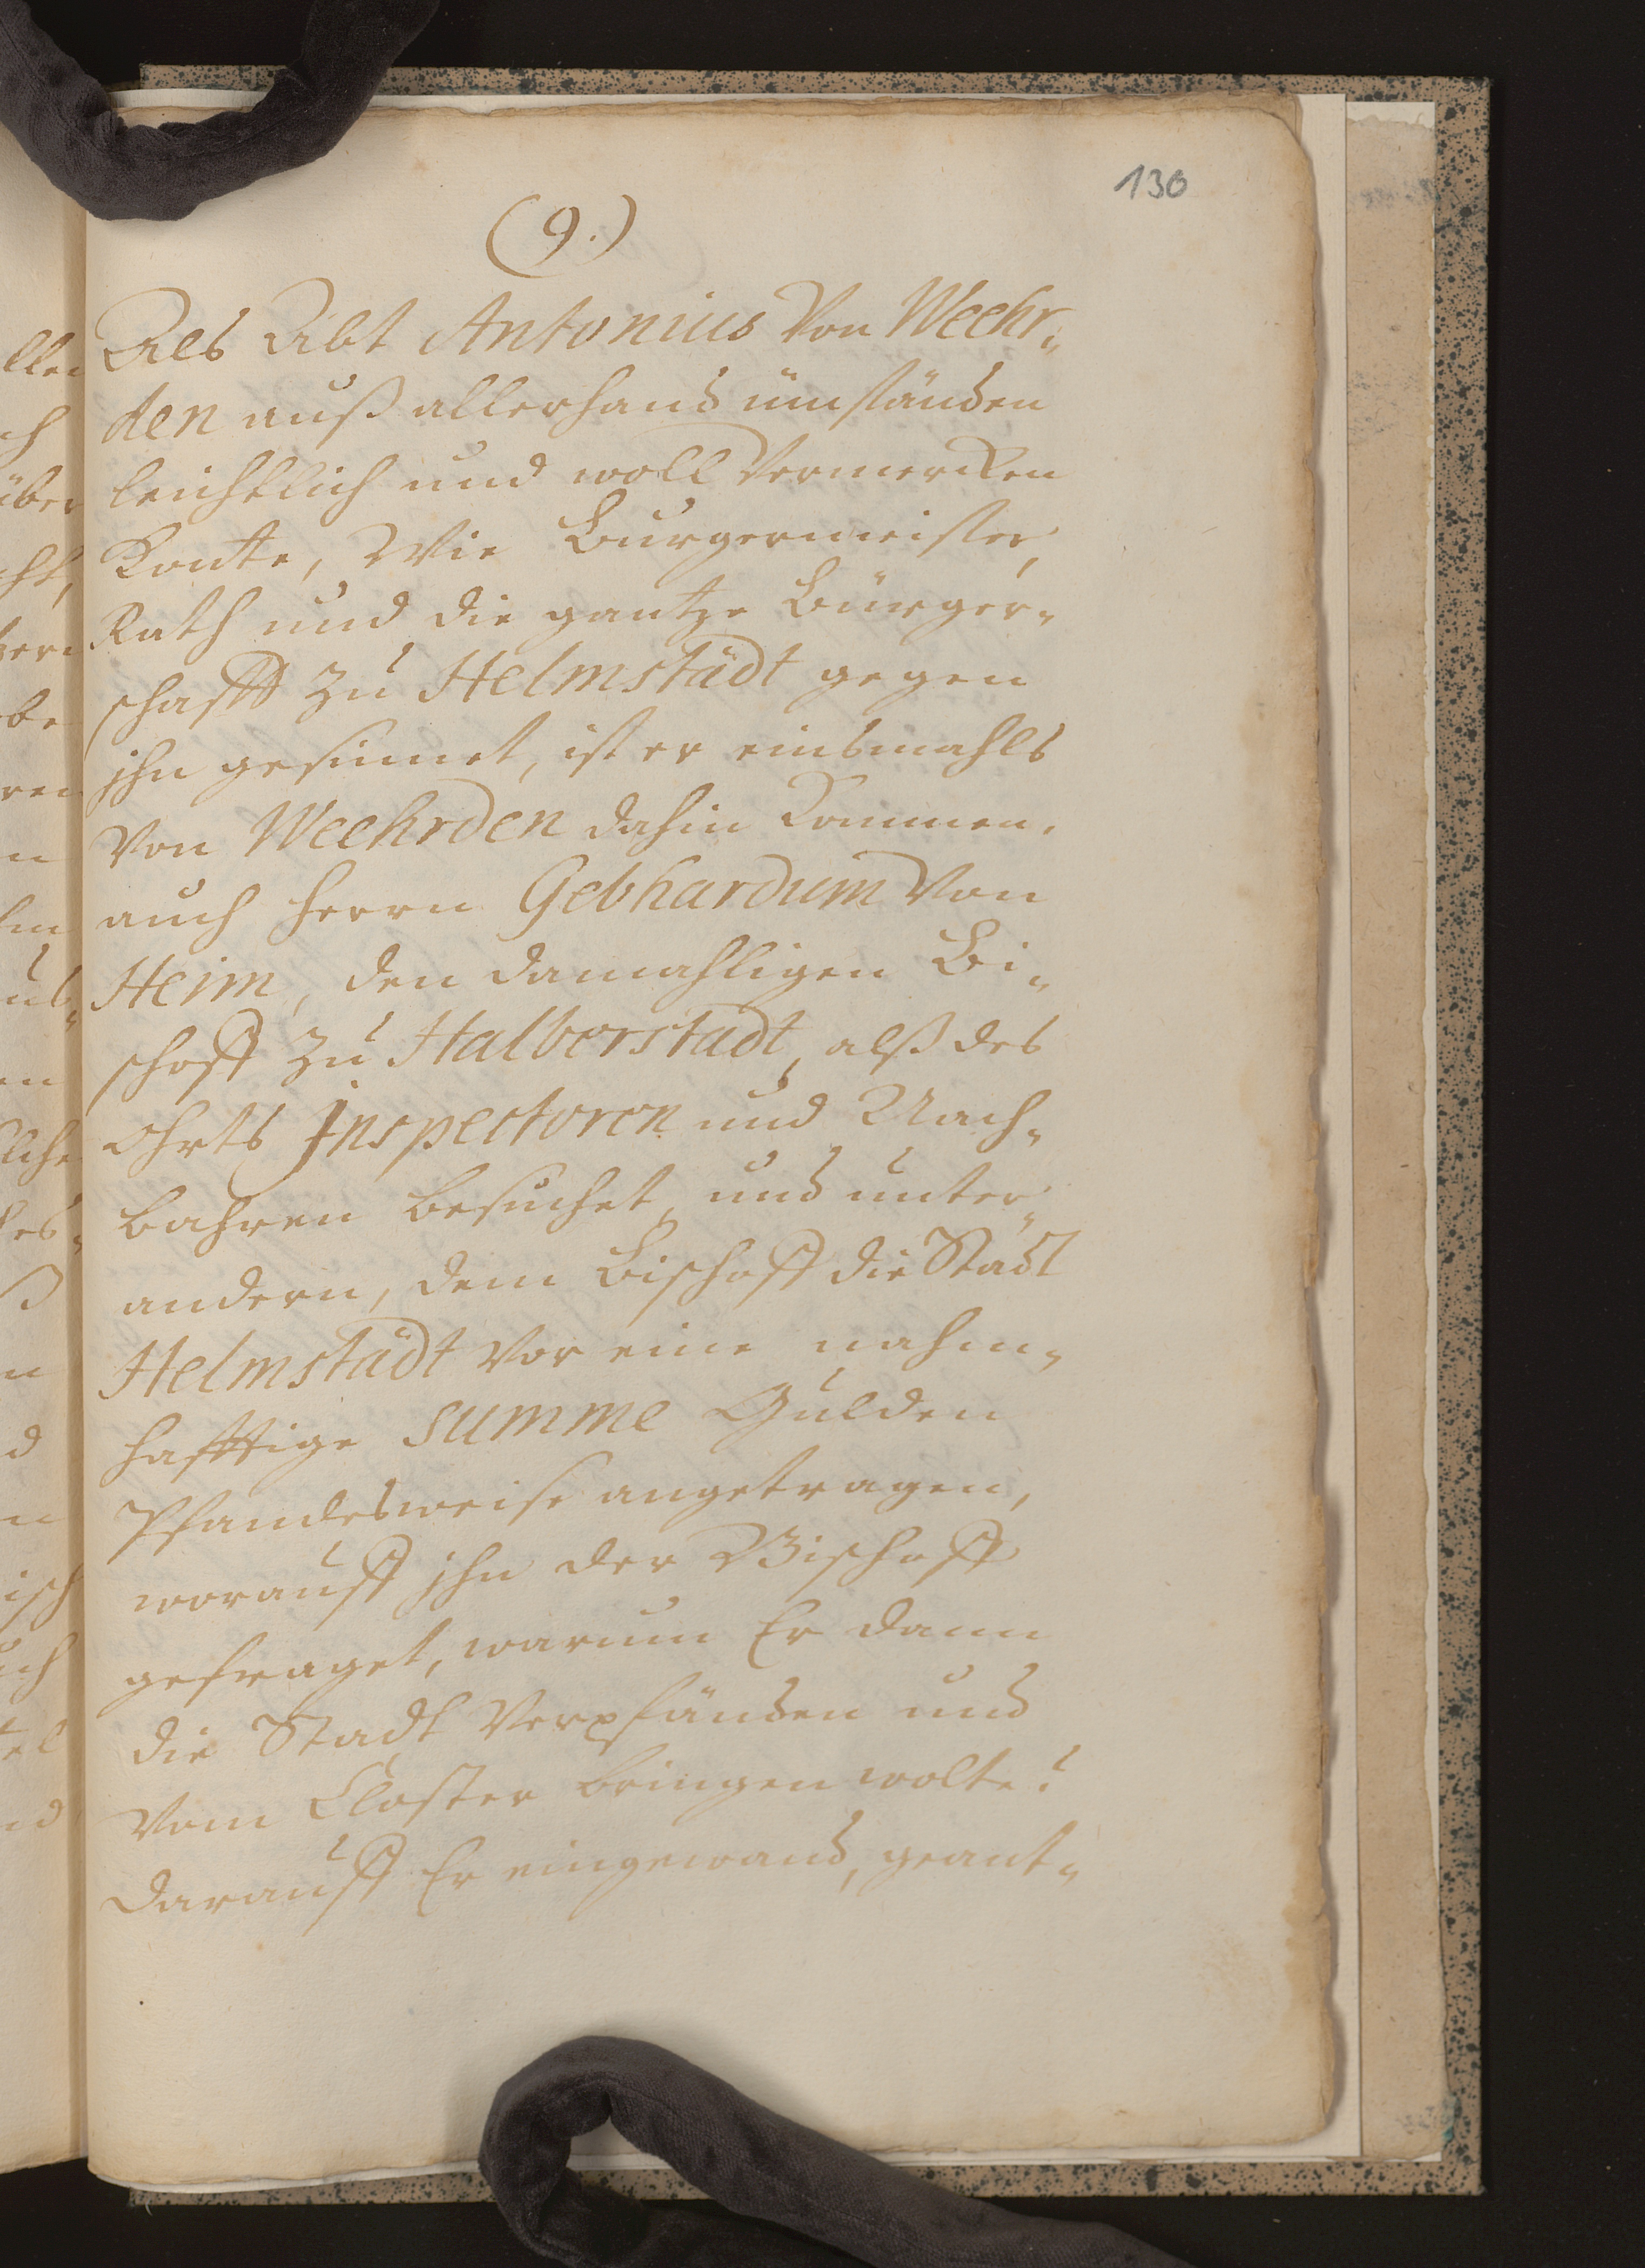 130
(9.)
Als Abt Antonius von Weehr-
den auß allerhand ümständen
leichtlich und woll vermercken
Konte, Wie Burgermeister,
Rath und die gantze Bürger-
schafft zu Helmstädt gegen
ihn gesinnet, ist er einsmahls
von Weehrden dahin kommen,
auch Herrn Gebhardum von
Heim, den damahligen Bi-
schoff zu Halberstadt, alß des
Ohrts Inspectoren und Nach-
bahren besuchet, und unter
andern, dem Bischoff die Stadt
Helmstädt vor eine nahm-
hafftige summe Gulden
Pfandesweise angetragen,
worauff ihn der Bischoff
gefraget, warum Er dann
die Stadt verpfänden und
vom Closter bringen wolte?
Darauff Er eingewand, geant-